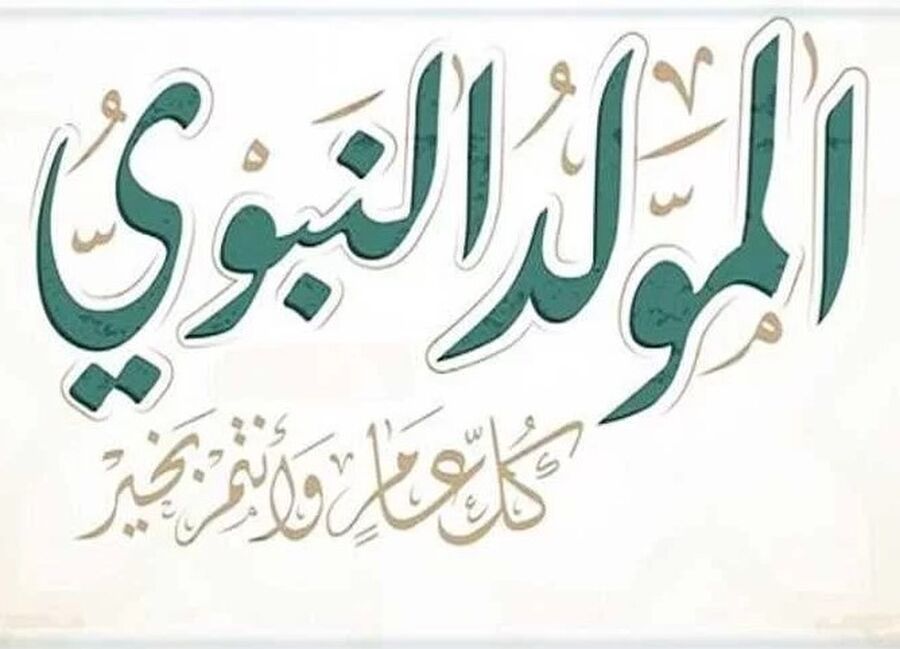 المَوْلِدُ النَّبَوْيُّ
كُلُّ عَامٍ وَأَنْتُمْ بَخَيْرْ